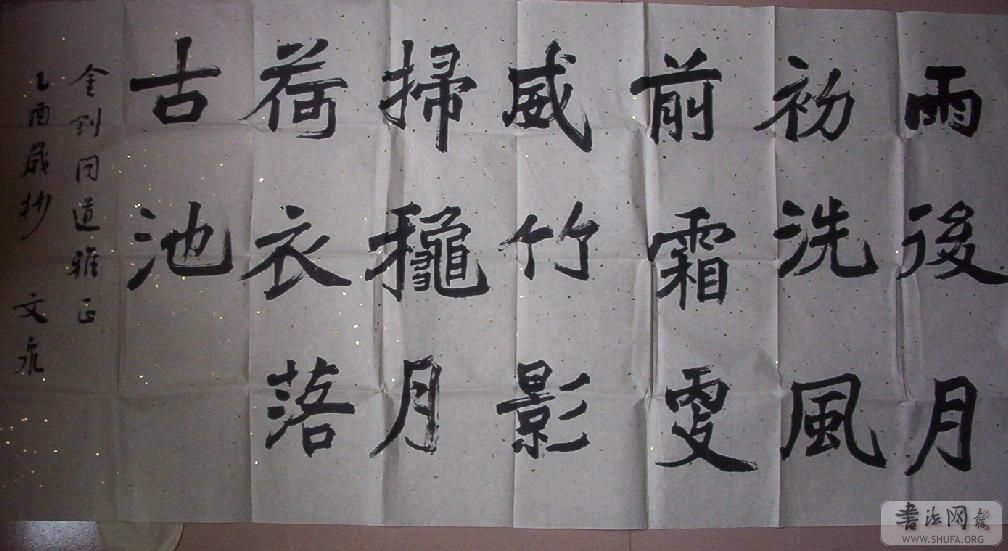 雨後月
初洗風
前霜
威竹影
掃龝月
荷衣落
古池
金釗同道雅正
乙酉歲杪 文
书法网
WWW.SHUFA.ORG